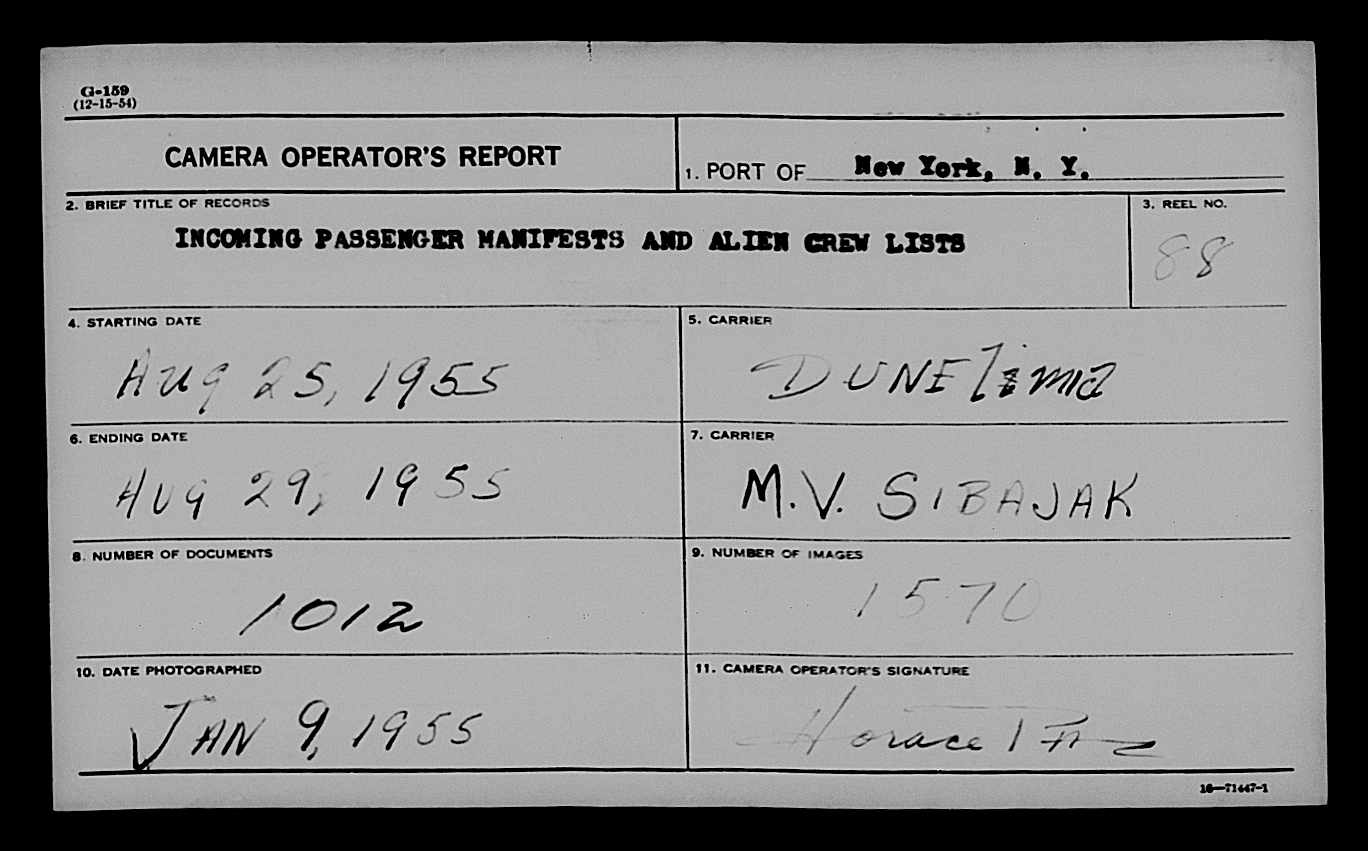 G-159
(12-15-54)
CAMERA OPERATOR'S REPORT
1. PORT OF New York, N. Y.
2. BRIEF TITLE OF RECORDS
INCOMING PASSENGER MANIFESTS AND ALIEN CREW LISTS
3. REEL NO.
88
4. STARTING DATE
Aug 25, 1955
5. CARRIER
DUNE
6. ENDING DATE
Aug 29, 1955
7. CARRIER
M.V. SIBAJAK
8. NUMBER OF DOCUMENTS
1012
9. NUMBER OF IMAGES
1570
10. DATE PHOTOGRAPHED
JAN 9, 1955
11. CAMERA OPERATOR'S SIGNATURE
Horace
16—71447-1